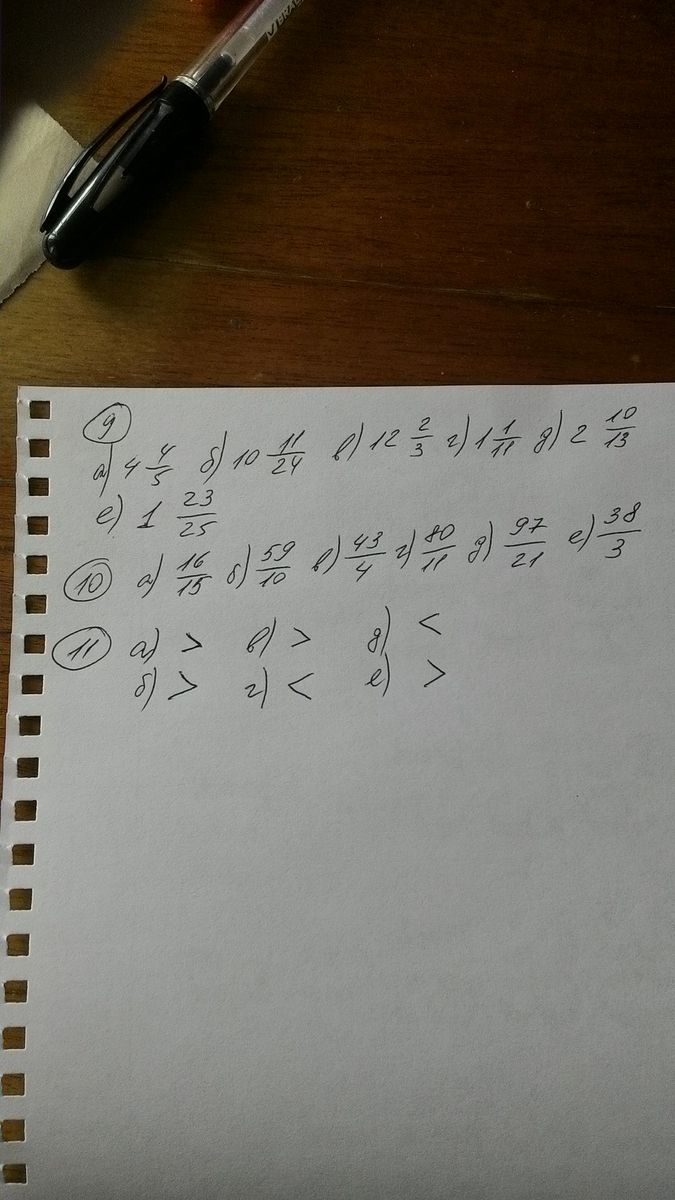 9
а) 4 4/5 б) 10 11/24 в) 12 2/3 г) 1 1/11 д) 2 10/13
е) 1 23/25
10 а) 16/15 б) 59/10 в) 43/4 г) 80/11 д) 97/21 е) 38/3
11 а) > в) > д) <
б) > г) < е) >